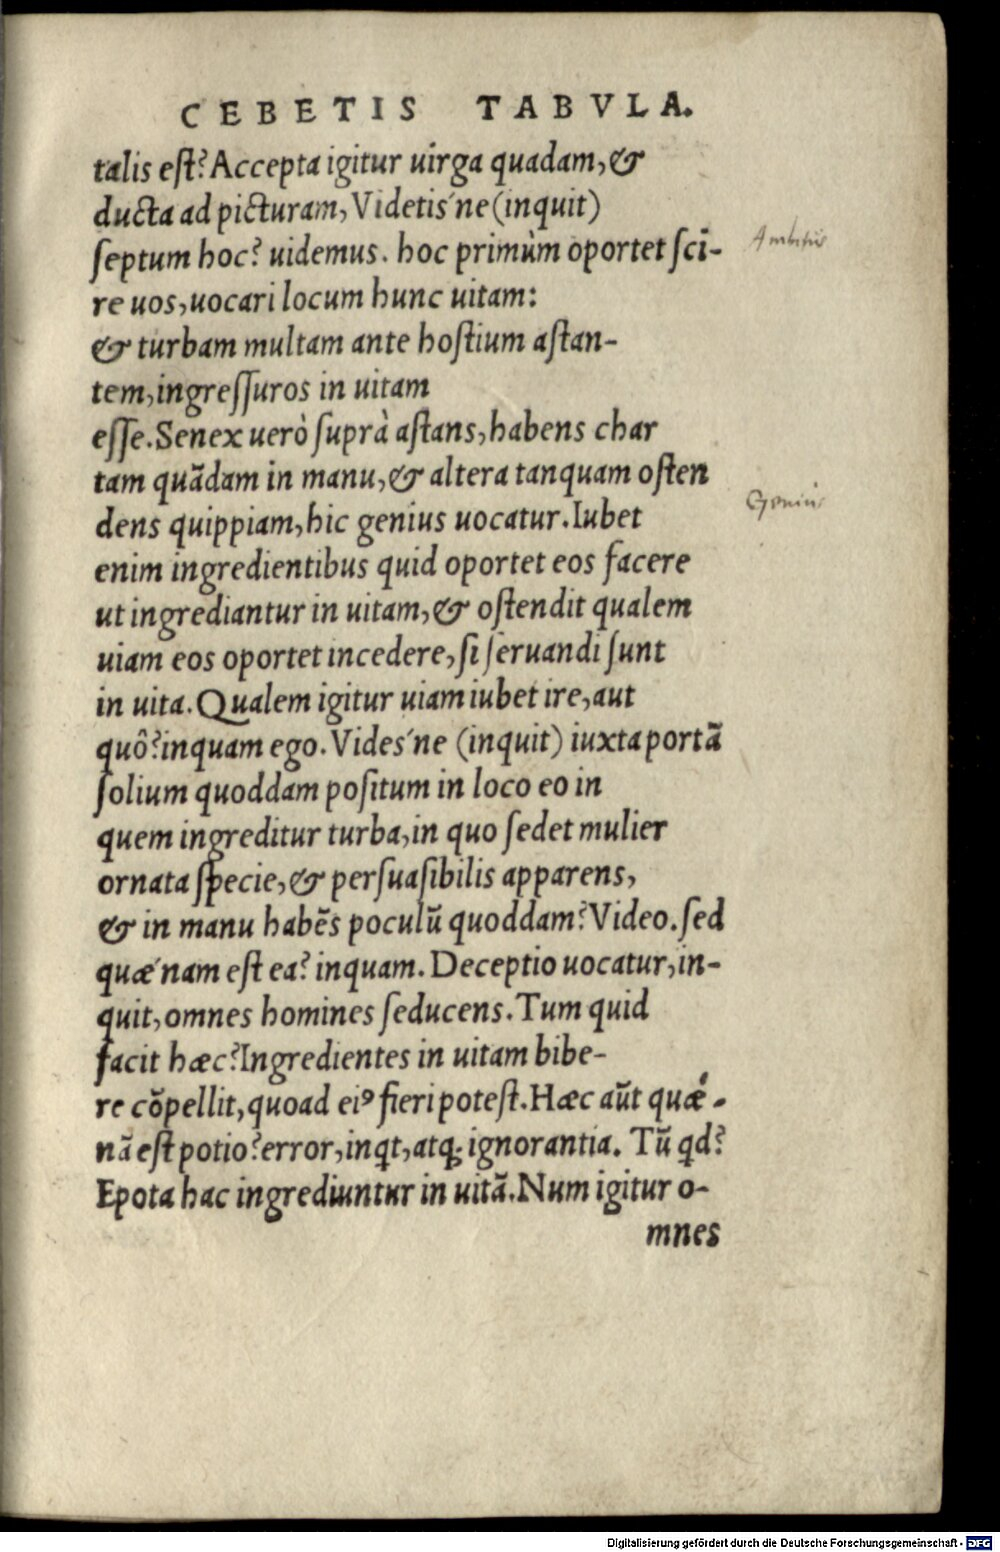 CEBETIS TABVLA.
talis eſt? Accepta igitur uirga quadam, &
ducta ad picturam, Videtis'ne (inquit)
ſeptum hoc? uidemus. hoc primùm oportet ſci-
re uos, uocari locum hunc uitam:
& turbam multam ante hoſtium aſtan-
tem, ingreſſuros in uitam
eſſe. Senex uerò ſuprà aſtans, habens char
tam quãdam in manu, & altera tanquam oſten
dens quippiam, hic genius uocatur. Iubet
enim ingredientibus quid oportet eos facere
ut ingrediantur in uitam, & oſtendit qualem
uiam eos oportet incedere, ſi ſeruandi ſunt
in uita. Qualem igitur uiam iubet ire, aut
quô? inquam ego. Vides'ne (inquit) iuxta portã
ſolium quoddam poſitum in loco eo in
quem ingreditur turba, in quo ſedet mulier
ornata ſpecie, & perſuaſibilis apparens,
& in manu habẽs poculũ quoddam? Video. ſed
quæ'nam eſt ea? inquam. Deceptio uocatur, in-
quit, omnes homines ſeducens. Tum quid
facit hæc? Ingredientes in uitam bibe-
re cõpellit, quoad eiꝰ fieri poteſt. Hæc aũt quæ'-
nã eſt potio? error, inqt, atq; ignorantia. Tũ qd?
Epota hac ingrediuntur in uitã. Num igitur o-
mnes
Ambitus
Genius
Digitalisierung gefördert durch die Deutsche Forschungsgemeinschaft - DFG